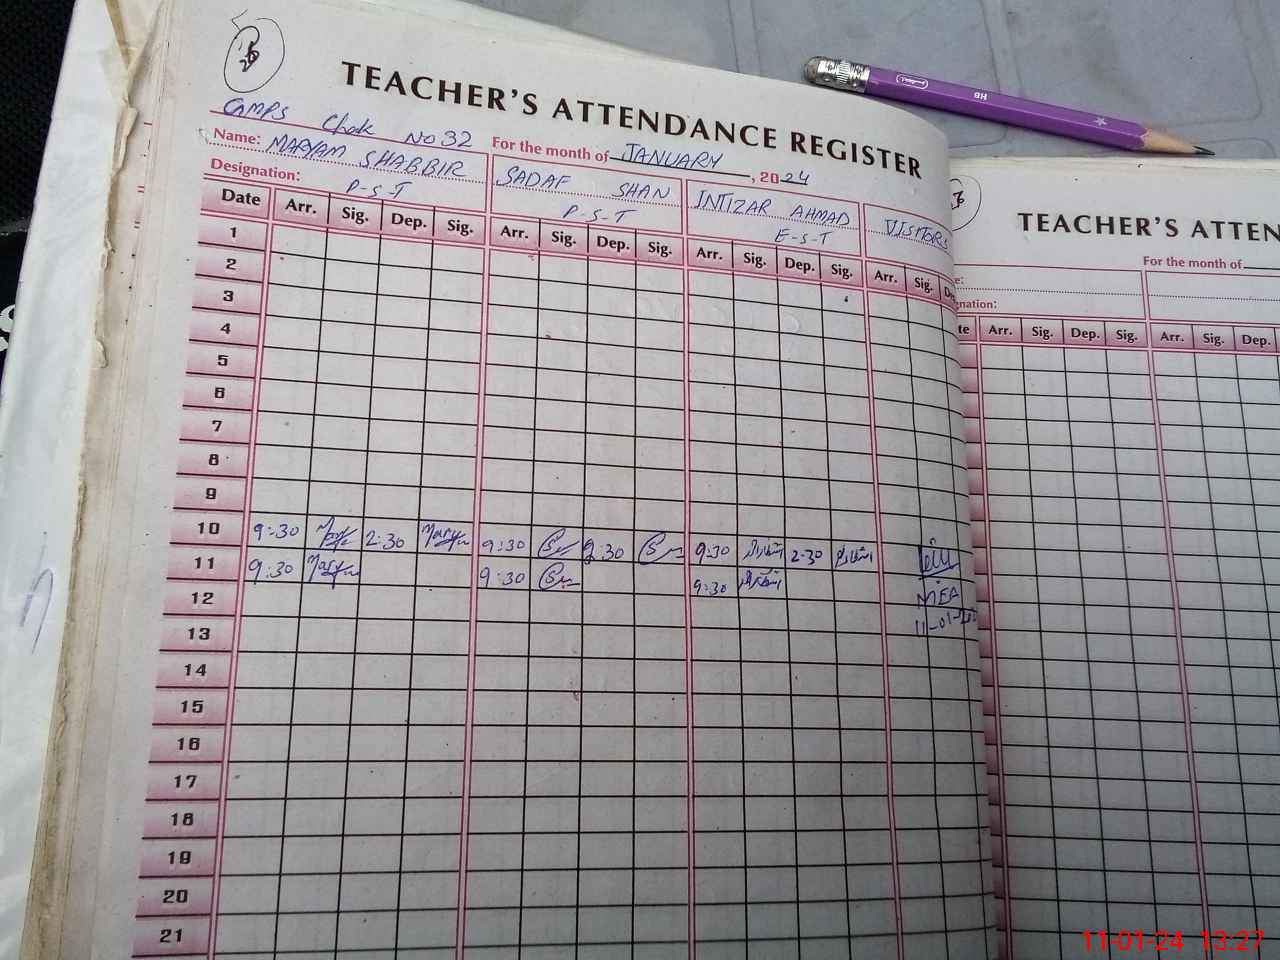 TEACHER'S ATTENDANCE REGISTER
GMPS Chak No 32
For the month of JANUARY, 2024
Name: MARYAM SHABBIR SADAF SHAN INTIZAR AHMAD VISITORS
Designation: P-S-T P-S-T E-S-T
Date Arr. Sig. Dep. Sig. Arr. Sig. Dep. Sig. Arr. Sig. Dep. Sig. Arr. Sig.
1
2
3
4
5
6
7
8
9
10 9:30 2:30 Maryam 9:30 2:30 9:30 2-30
11 9:30 9:30 9:30
12 MEA
13 11-01-
14
15
16
17
18
19
20
21
TEACHER'S ATTEN
For the month of
Arr. Sig. Dep. Sig. Arr. Sig. Dep.
HB
11-01-24 13:27